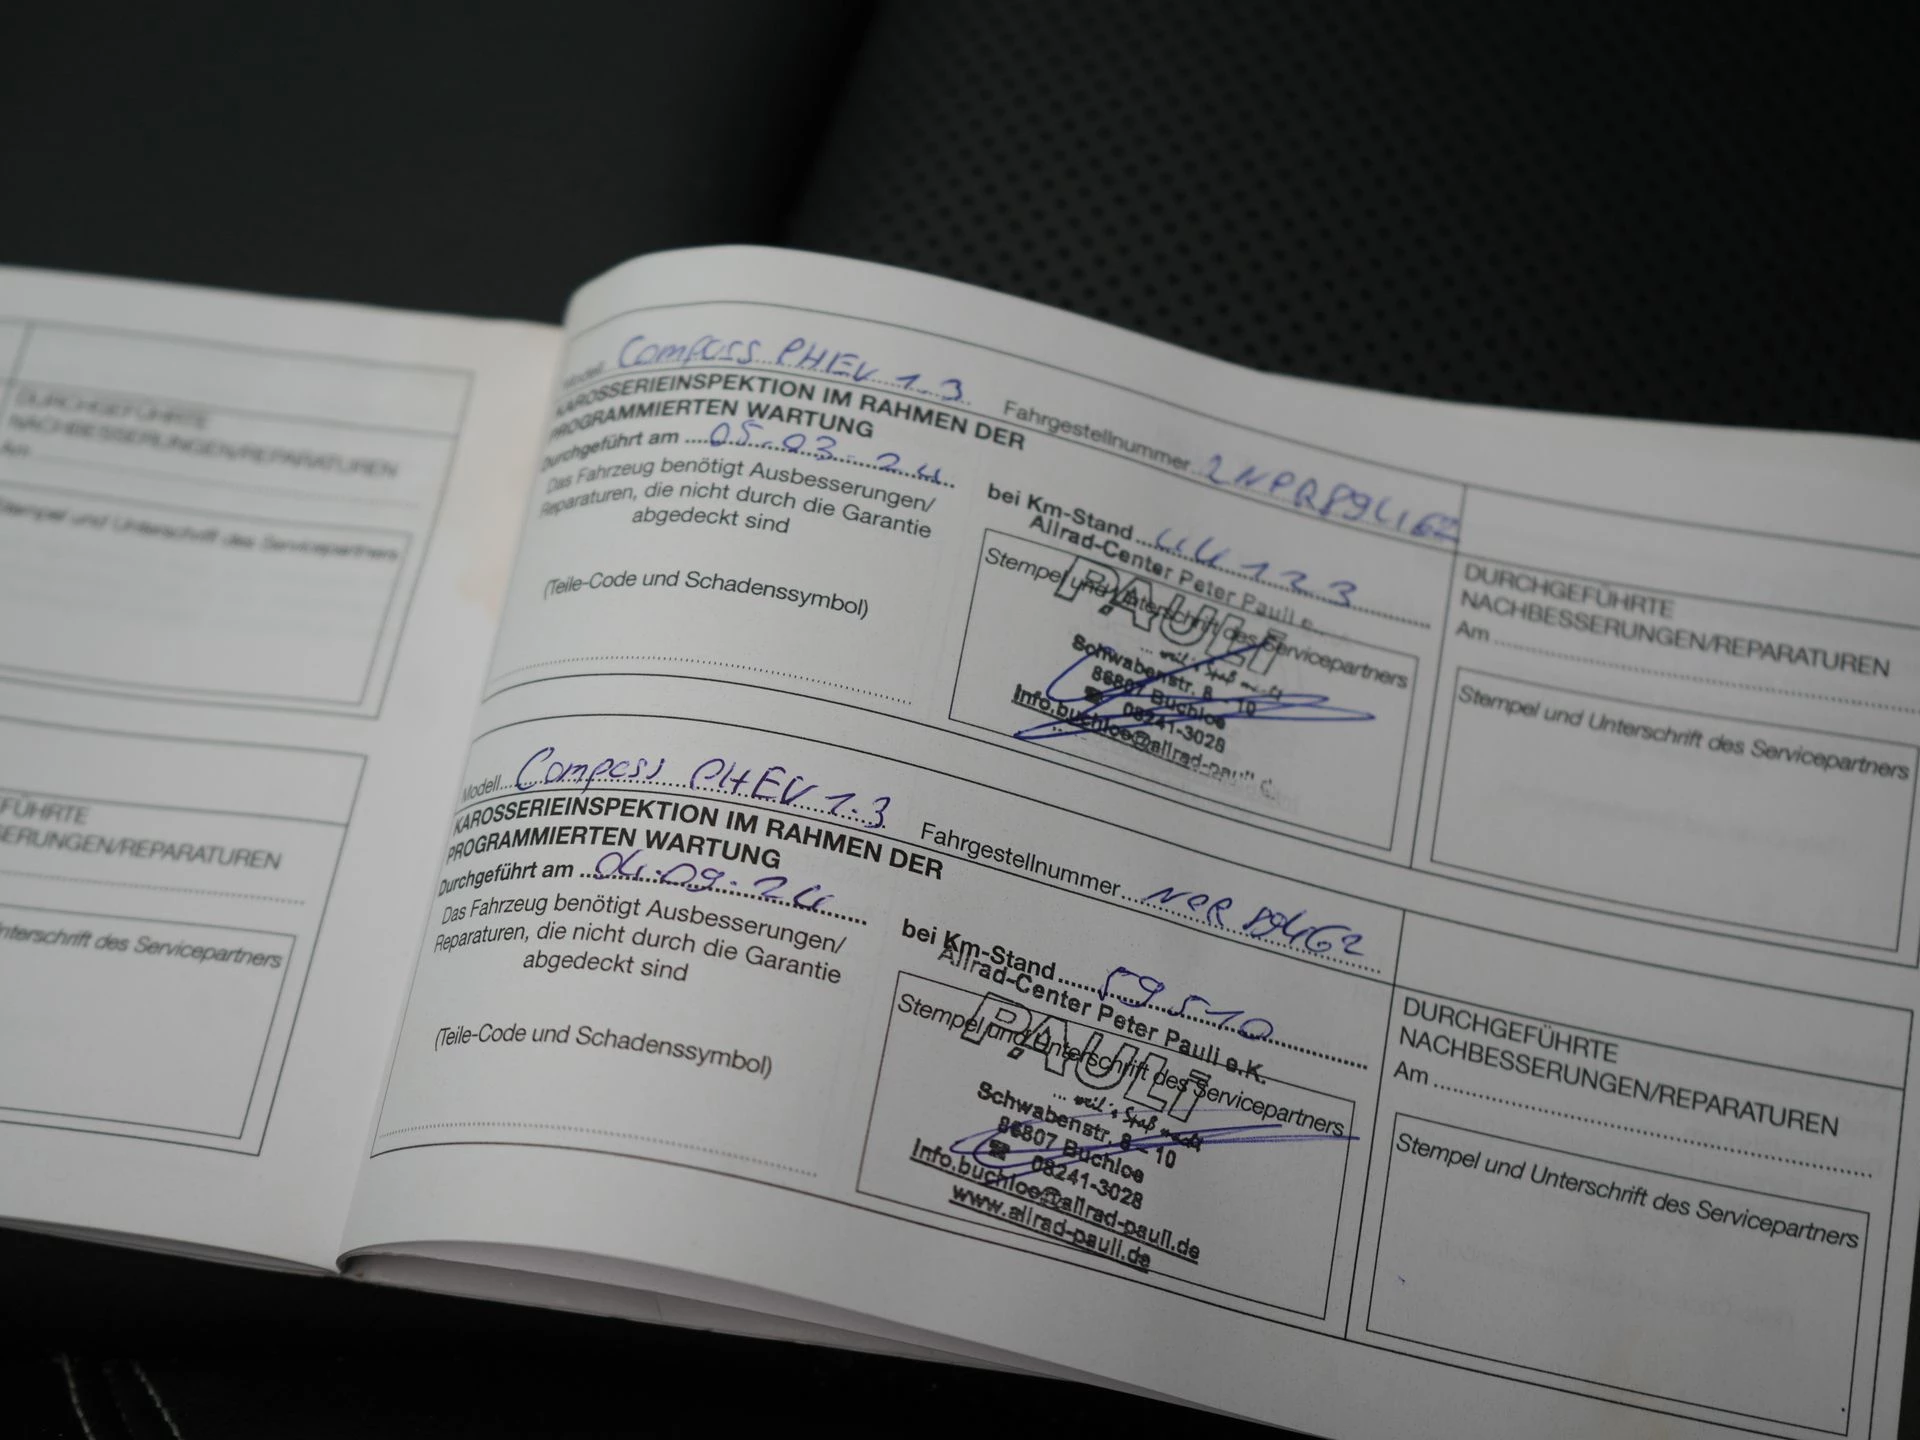 DURCHGEFÜHRTE
NACHBESSERUNGEN/REPARATUREN
Am
Stempel und Unterschrift des Servicepartners
FÜHRTE
SERUNGEN/REPARATUREN
nterschrift des Servicepartners
Modell Compass PHEV 1.3
Fahrgestellnummer
KAROSSERIEINSPEKTION IM RAHMEN DER
PROGRAMMIERTEN WARTUNG
Durchgeführt am 05.03.24
Das Fahrzeug benötigt Ausbesserungen/
Reparaturen, die nicht durch die Garantie
abgedeckt sind
(Teile-Code und Schadenssymbol)
bei Km-Stand 44133
Allrad-Center Peter Pauli
Stempel und Unterschrift des Servicepartners
PAULI
Schwabenstr. 8 - 10
86807 Buchloe
☎ 08241-3028
Info.buchloe@allrad-pauli.d
DURCHGEFÜHRTE
NACHBESSERUNGEN/REPARATUREN
Am
Stempel und Unterschrift des Servicepartners
Modell Compass PHEV 1.3
Fahrgestellnummer NPR89462
KAROSSERIEINSPEKTION IM RAHMEN DER
PROGRAMMIERTEN WARTUNG
Durchgeführt am 04.09.24
Das Fahrzeug benötigt Ausbesserungen/
Reparaturen, die nicht durch die Garantie
abgedeckt sind
(Teile-Code und Schadenssymbol)
bei Km-Stand 59510
Allrad-Center Peter Pauli e.K.
Stempel und Unterschrift des Servicepartners
PAULI
... weil's Spaß macht
Schwabenstr. 8 - 10
86807 Buchloe
☎ 08241-3028
Info.buchloe@allrad-pauli.de
www.allrad-pauli.de
DURCHGEFÜHRTE
NACHBESSERUNGEN/REPARATUREN
Am
Stempel und Unterschrift des Servicepartners